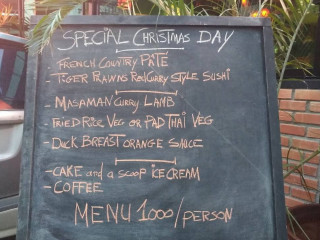 SPECIAL CHRISTMAS DAY
- FRENCH COUNTRY PÂTE
- TIGER PRAWNS RED CURRY STYLE SUSHI
- MASAMAN CURRY LAMB
- FRIED RICE VEG OR PAD THAI VEG
- DUCK BREAST ORANGE SAUCE
- CAKE and a SCOOP ICE CREAM
- COFFEE
MENU 1000/PERSON